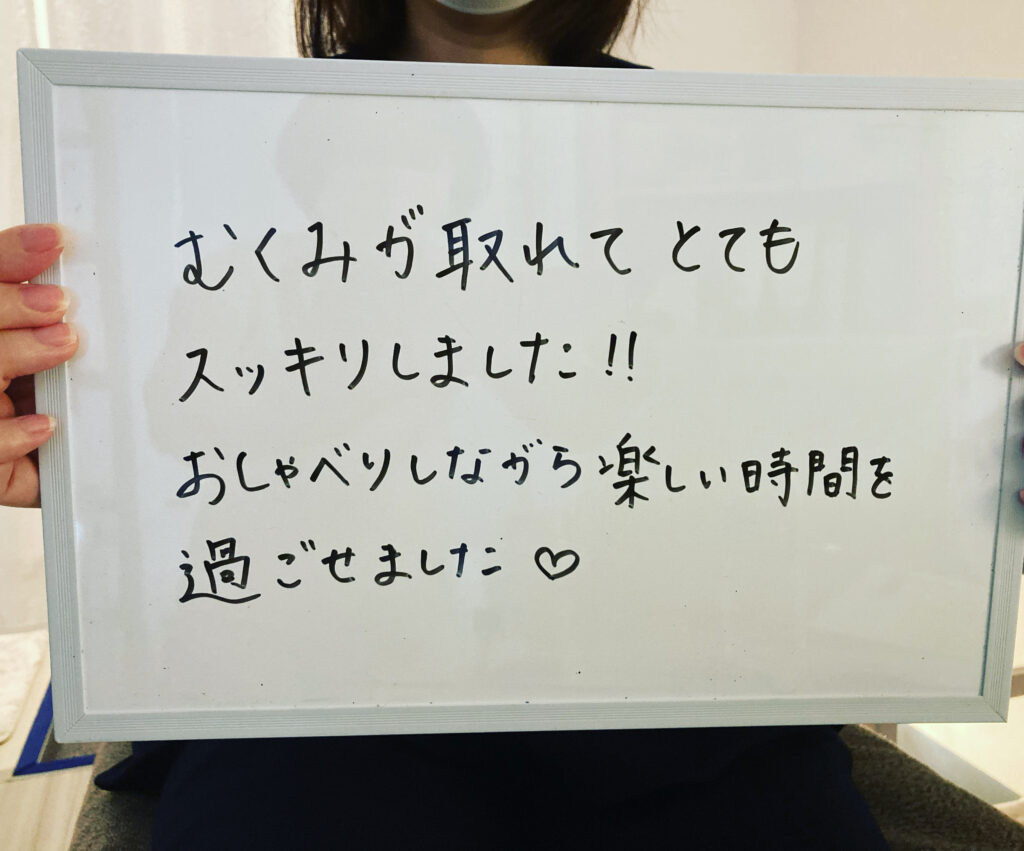 むくみが取れて とても
スッキリしました!!
おしゃべりしながら楽しい時間を
過ごせました♡